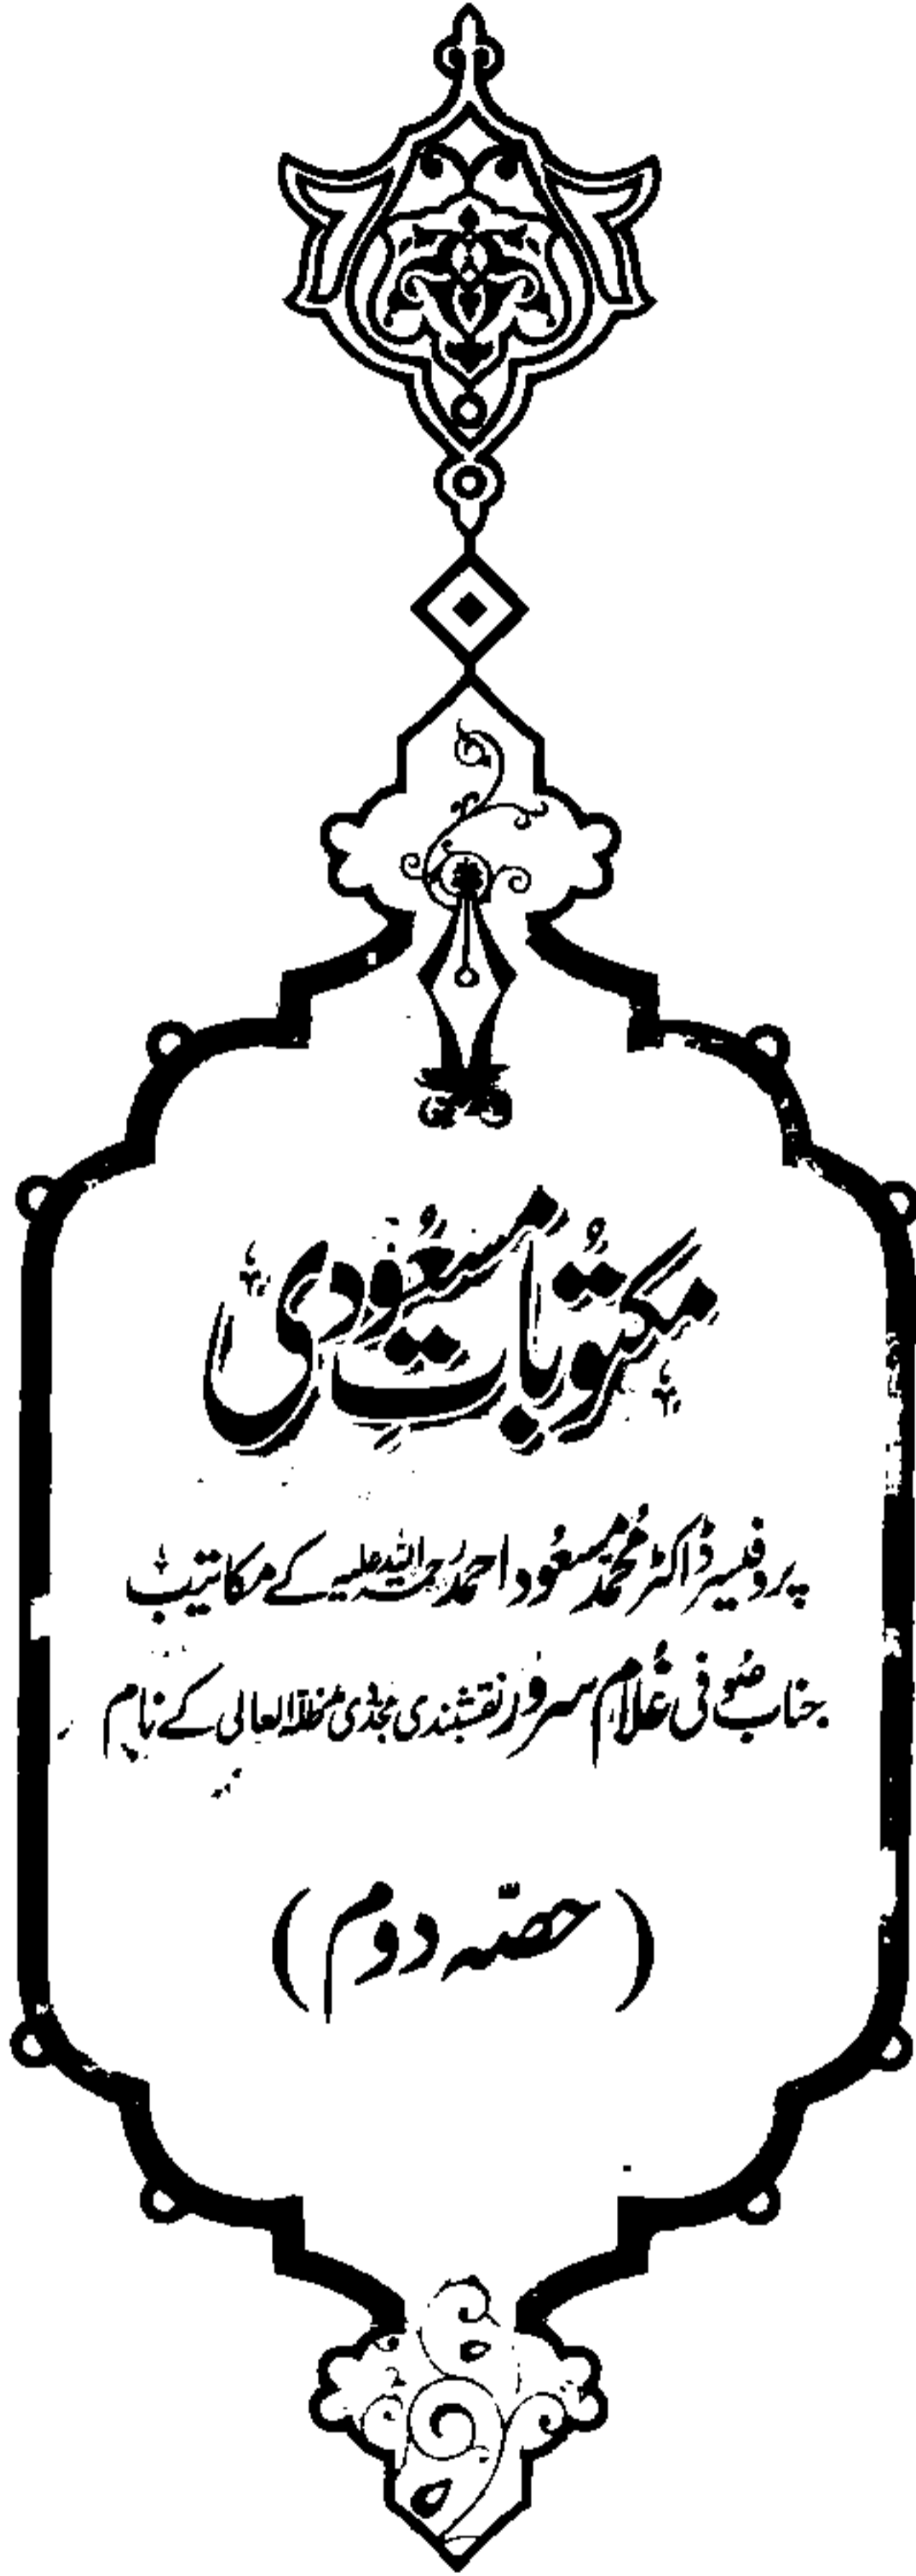 مکتوُباتِ مسعُودی
پروفیسر ڈاکٹر مُحمّد مسعُود احمد رحمۃ اللہ علیہ کے مکاتیب
جناب صُوفی غُلام سرور نقشبندی مجدّدی مدظلہ العالی کے نام
(حصّہ دوم)